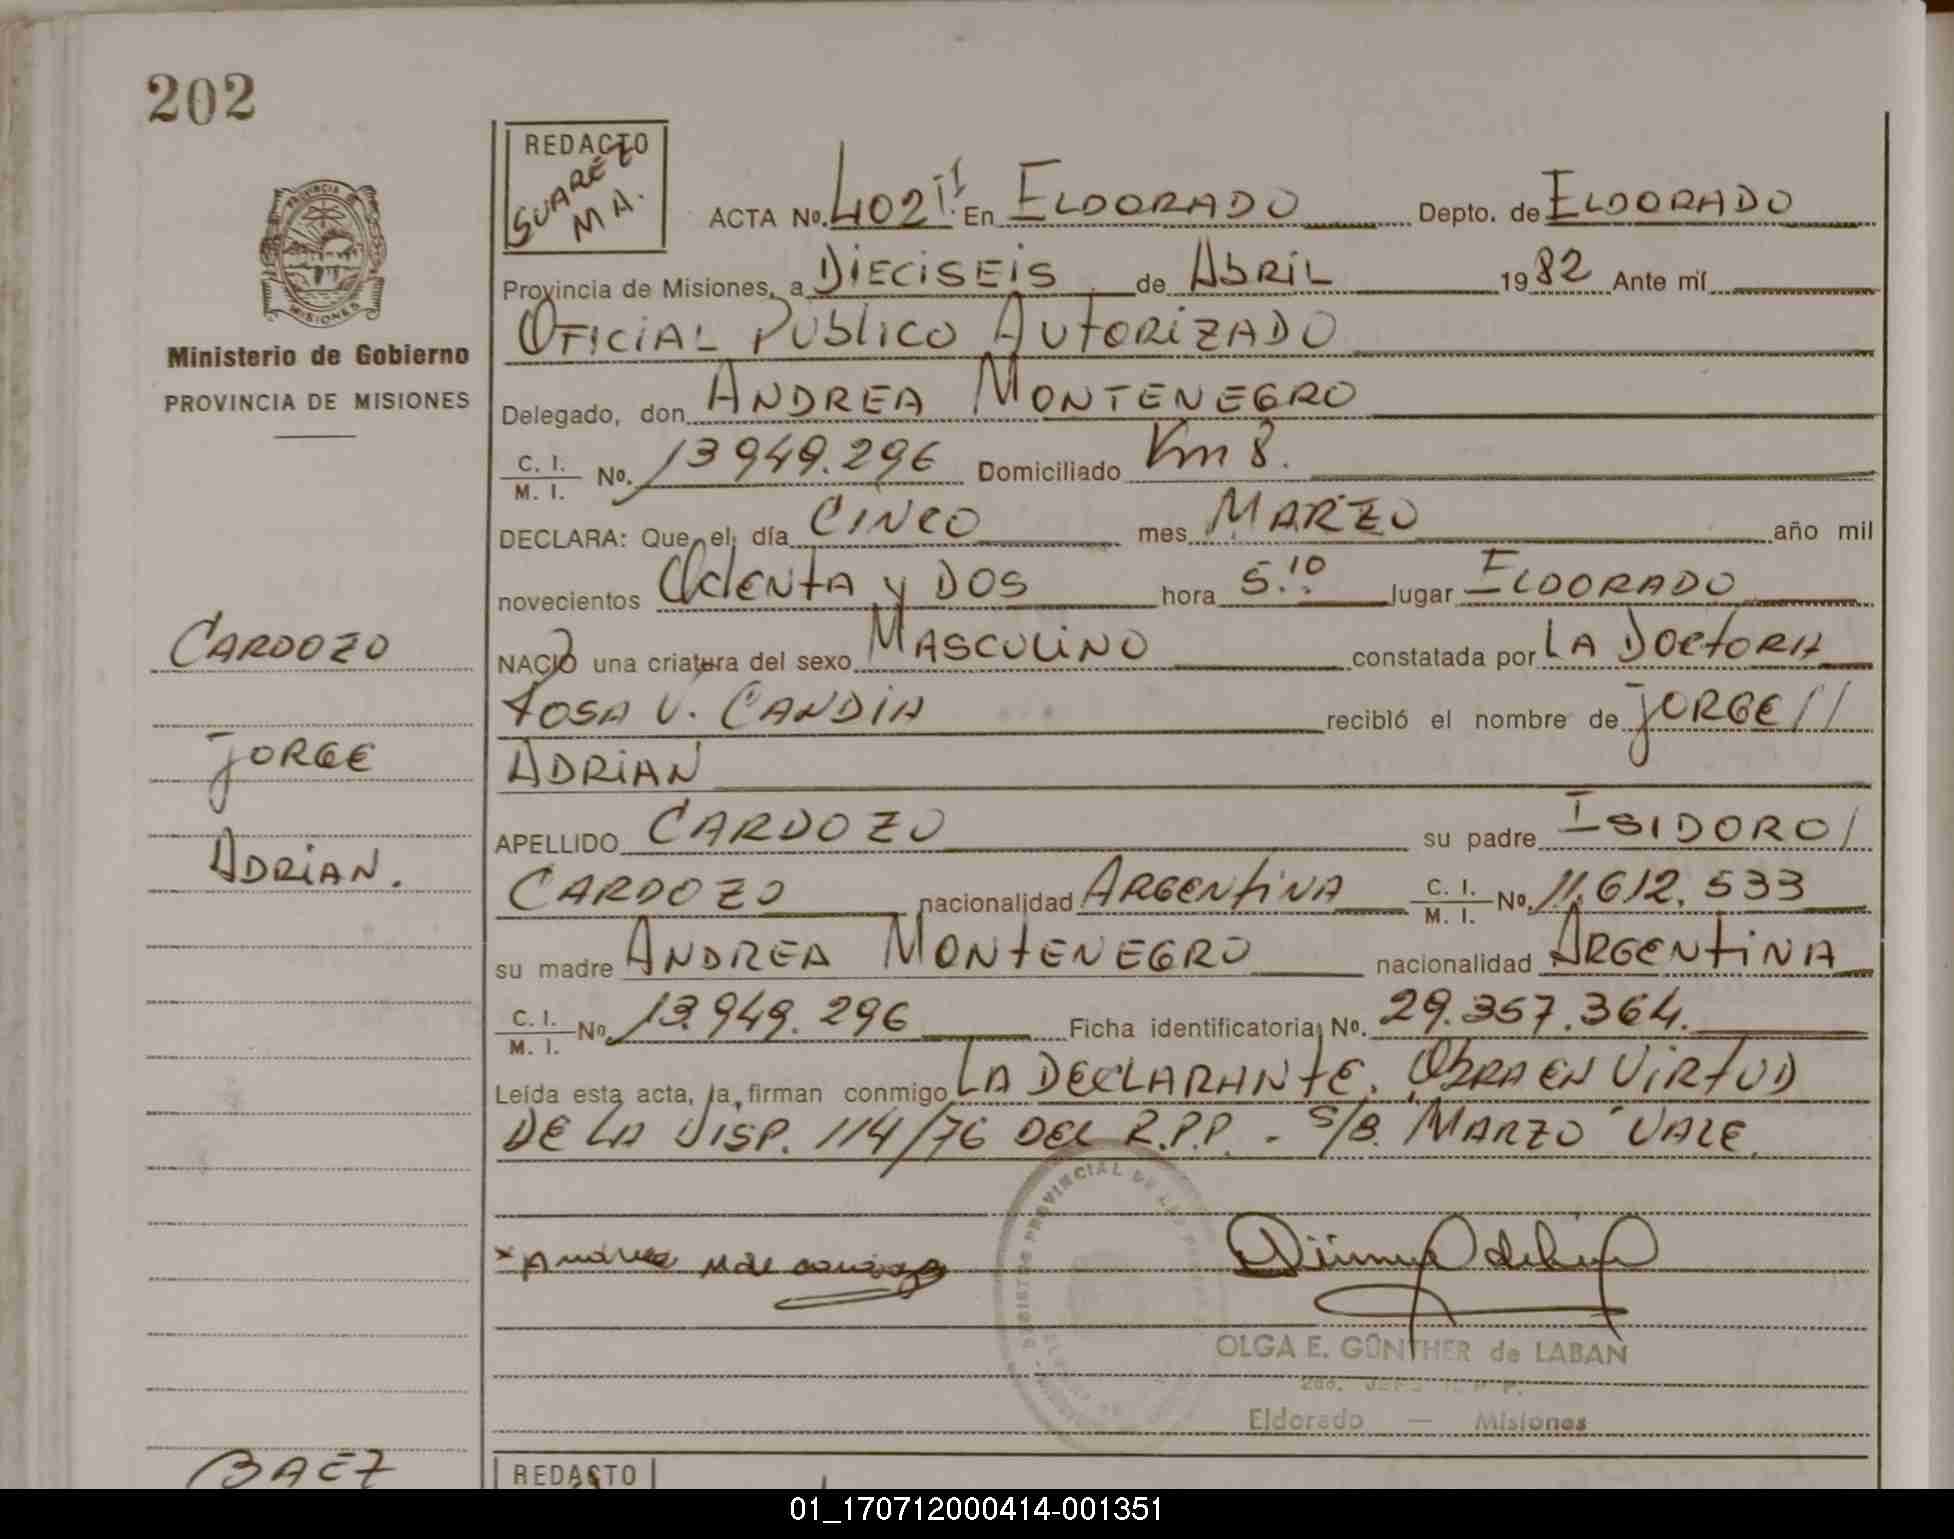 202
REDACTO
SUAREZ
M A.
ACTA No. 402 En ELDORADO Depto. de ELDORADO
Provincia de Misiones, a DIECISEIS de Abril 1982 Ante mí
OFICIAL PUBLICO AUTORIZADO
PROVINCIA DE
MISIONES
Ministerio de Gobierno
PROVINCIA DE MISIONES
Delegado, don ANDREA MONTENEGRO
C. I.
M. I. No. 13949.296 Domiciliado Km 8.
DECLARA: Que el día CINCO mes MARZO año mil
novecientos OCHENTA y DOS hora 5.10 lugar ELDORADO
NACIO una criatura del sexo MASCULINO constatada por LA DOCTORA
ROSA V. CANDIA recibió el nombre de JORGE //
ADRIAN
APELLIDO CARDOZO su padre ISIDORO /
CARDOZO nacionalidad ARGENTINA C. I. M. I. No. 11.612.533
su madre ANDREA MONTENEGRO nacionalidad ARGENTINA
C. I. M. I. No. 13.949.296 Ficha identificatoria No. 29.357.364.
Leída esta acta, la firman conmigo LA DECLARANTE. OBRA EN VIRTUD
DE LA DISP. 114/76 DEL R.P.P. - S/B. MARZO VALE.
CARDOZO
JORGE
ADRIAN.
REGISTRO PROVINCIAL DE LAS
OLGA E. GÜNTHER de LABAN
Eldorado — Misiones
BAEZ
REDACTO
01_170712000414-001351